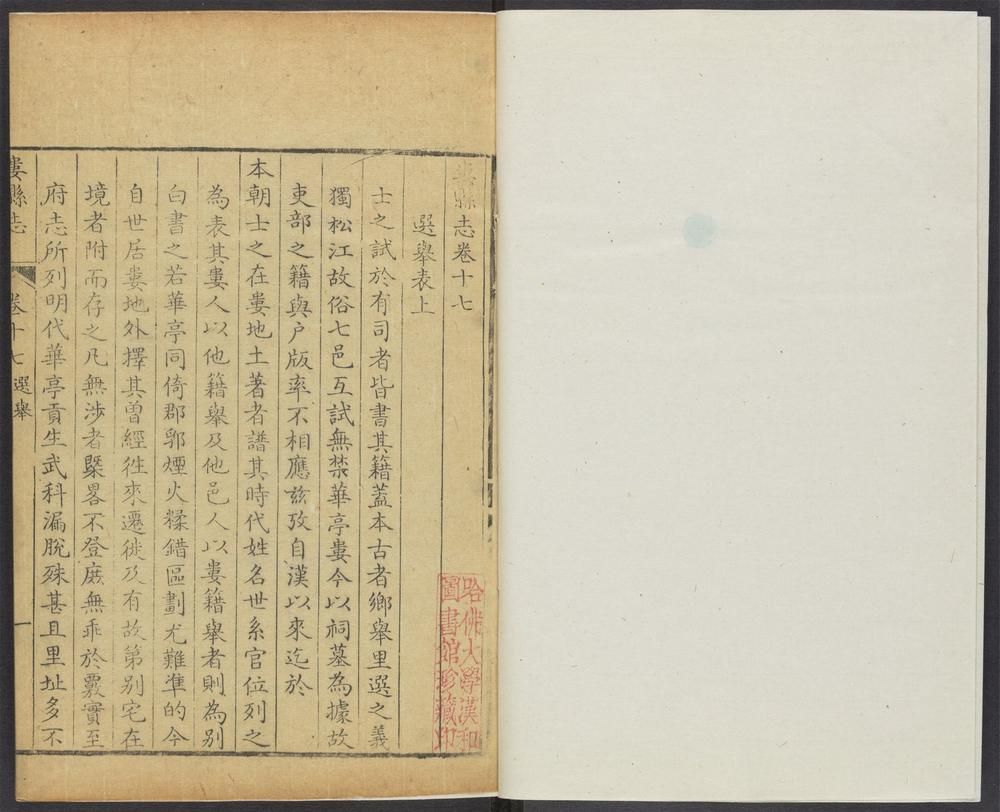 婁縣志卷十七
選舉表上
士之試於有司者皆書其籍蓋本古者鄉舉里選之義
獨松江故俗七邑互試無禁華亭婁今以祠墓為據故
吏部之籍與户版率不相應兹攷自漢以來迄於
本朝士之在婁地土著者譜其時代姓名世系官位列之
為表其婁人以他籍舉及他邑人以婁籍舉者則為别
白書之若華亭同倚郡郭煙火糅錯區劃尤難準的今
自世居婁地外擇其曽經徃來遷徙及有故第别宅在
境者附而存之凡無渉者槩畧不登庶無乖於覈實至
府志所列明代華亭貢生武科漏脫殊甚且里址多不
婁縣志
卷十七選舉
一
哈佛大學漢和
圖書館珍藏印